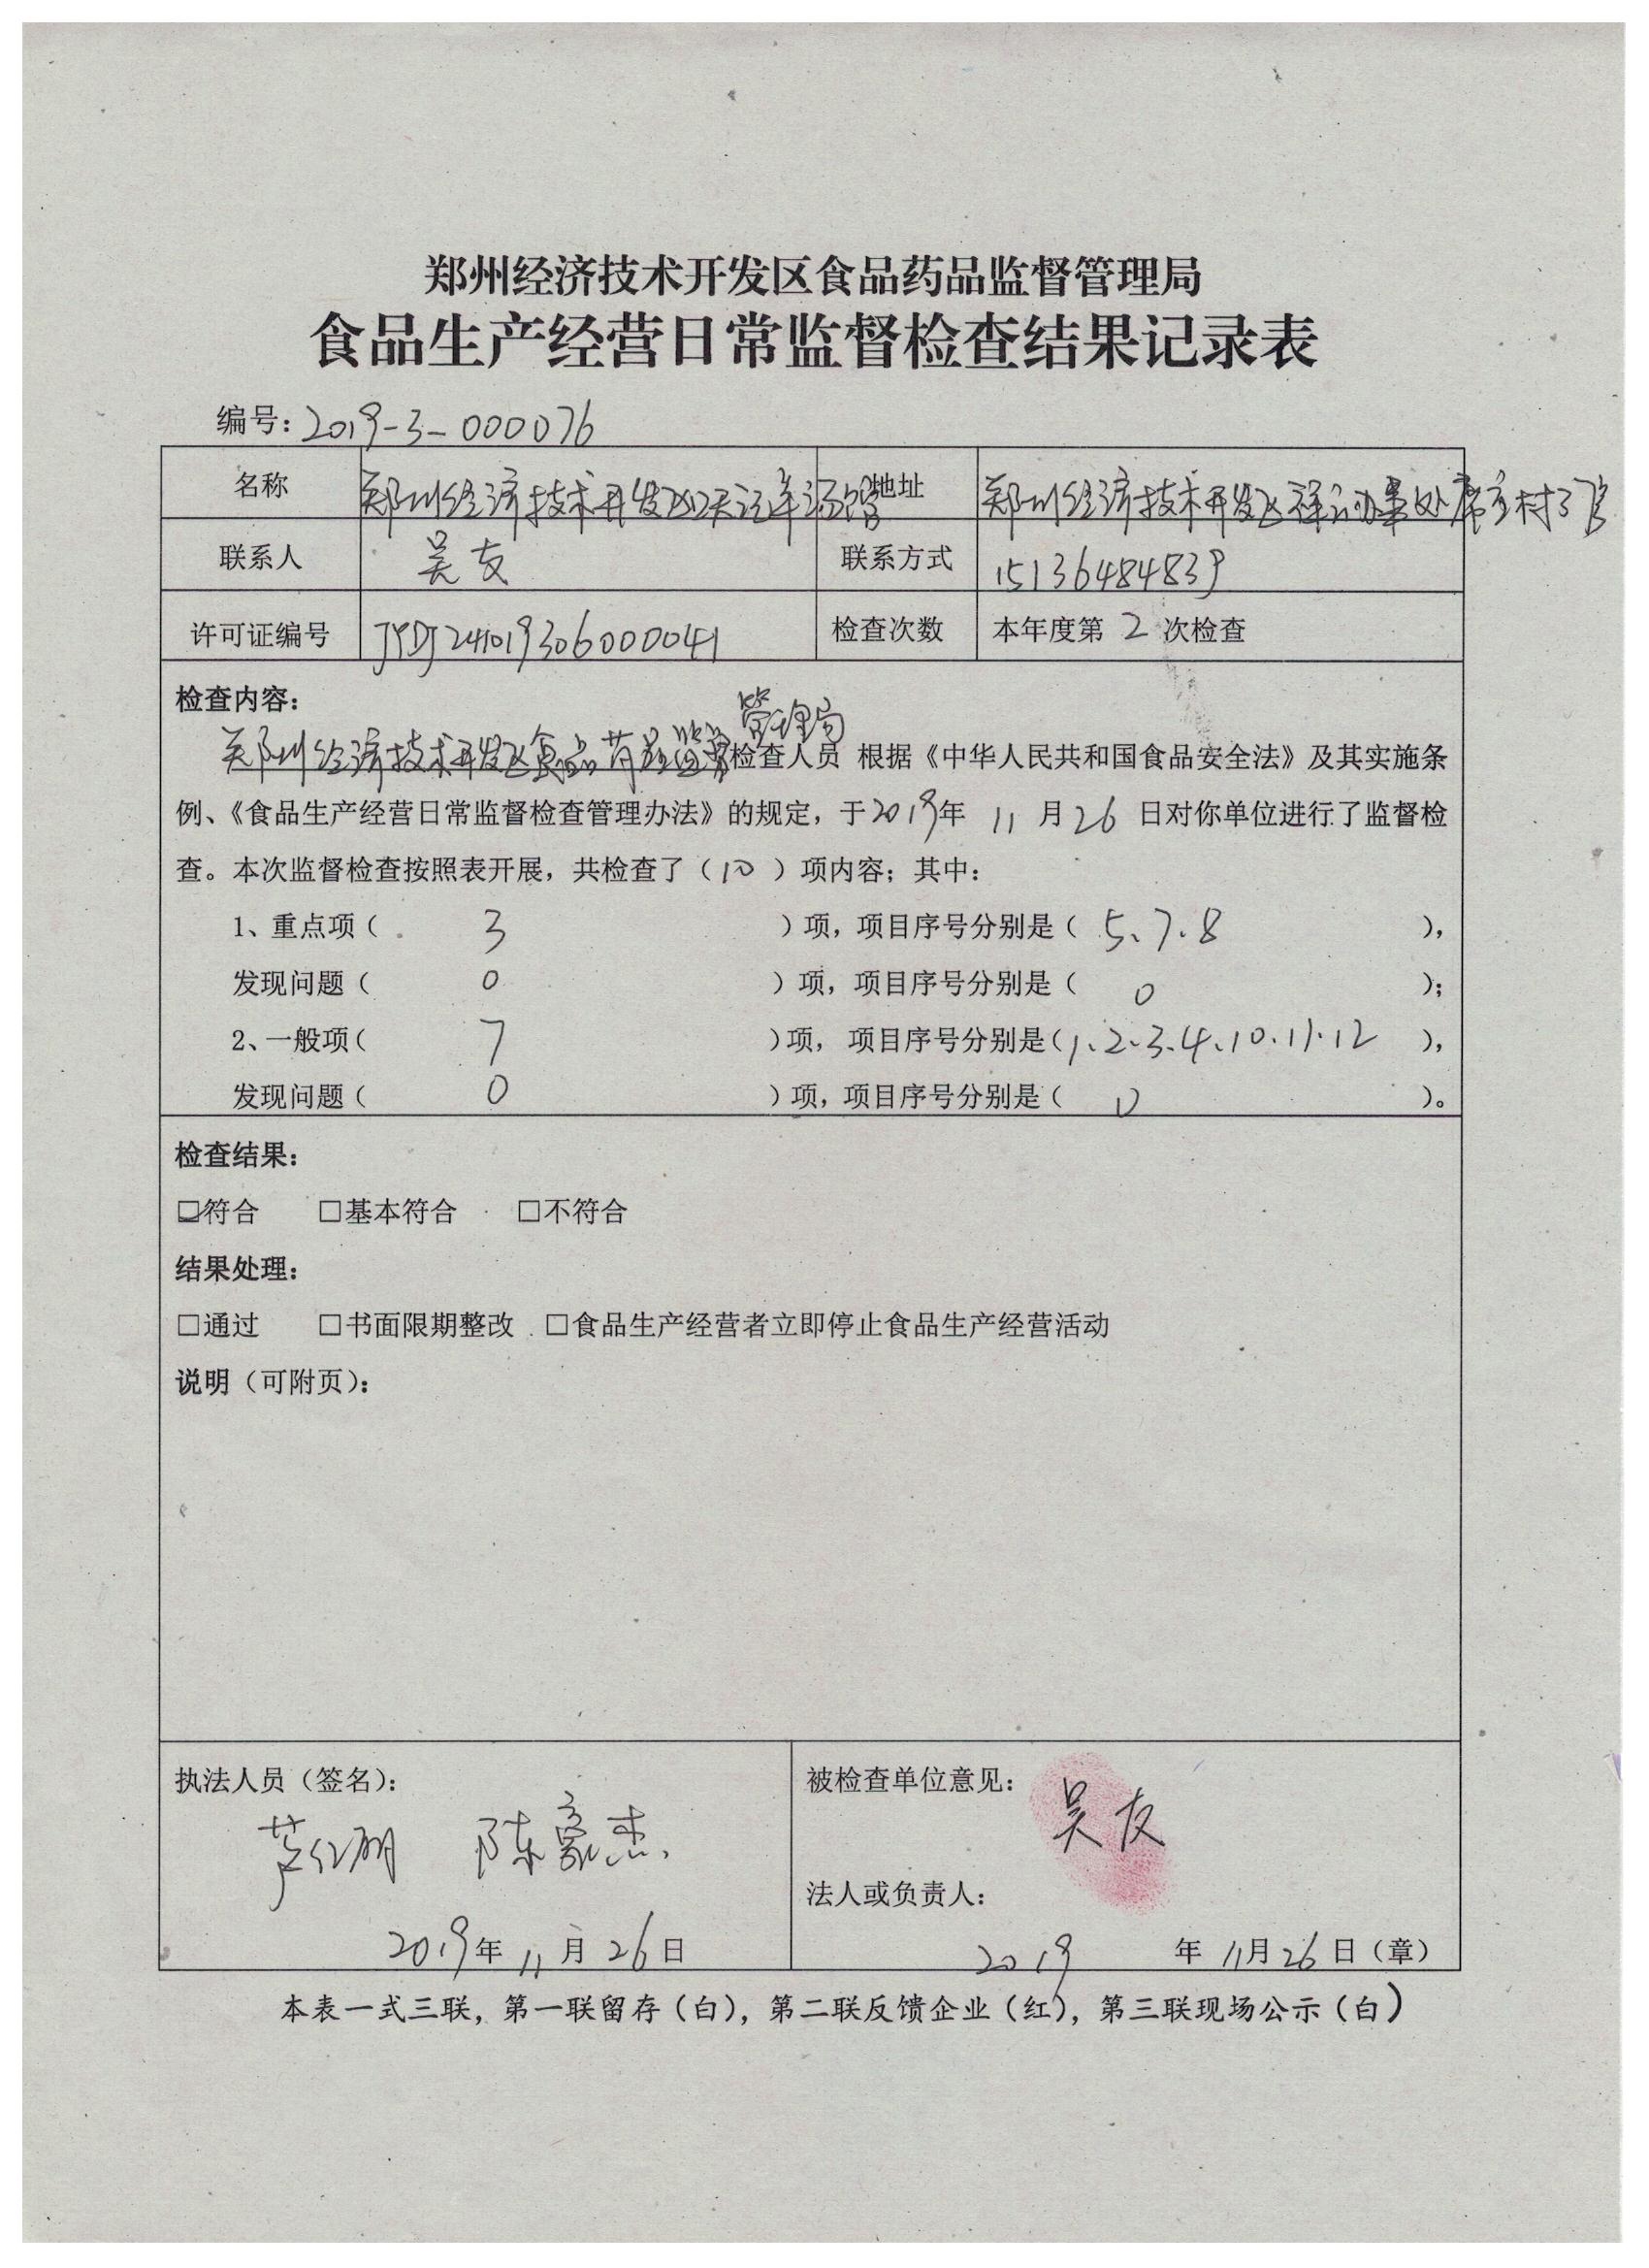 郑州经济技术开发区食品药品监督管理局
食品生产经营日常监督检查结果记录表
编号：2019-3-000076
名称 郑州经济技术开发区 汤馆 地址 郑州经济技术开发区祥云办事处席村
联系人 吴友 联系方式 15136484839
许可证编号 JYDJ241019306000041 检查次数 本年度第 2 次检查
检查内容：
管理局
郑州经济技术开发区食品药品监督检查人员 根据《中华人民共和国食品安全法》及其实施条
例、《食品生产经营日常监督检查管理办法》的规定，于2019年 11 月26 日对你单位进行了监督检
查。本次监督检查按照表开展，共检查了（10）项内容；其中：
1、重点项（ 3 ）项，项目序号分别是（ 5、7、8 ），
发现问题（ 0 ）项，项目序号分别是（ 0 ）；
2、一般项（ 7 ）项， 项目序号分别是（1、2、3、4、10、11、12 ），
发现问题（ 0 ）项，项目序号分别是（ 0 ）。
检查结果：
☑符合 □基本符合 □不符合
结果处理：
□通过 □书面限期整改 □食品生产经营者立即停止食品生产经营活动
说明（可附页）：
执法人员（签名）： 被检查单位意见：
陈豪杰 吴友
法人或负责人：
2019年 11 月 26 日 2019 年 11月 26 日（章）
本表一式三联，第一联留存（白），第二联反馈企业（红），第三联现场公示（白）